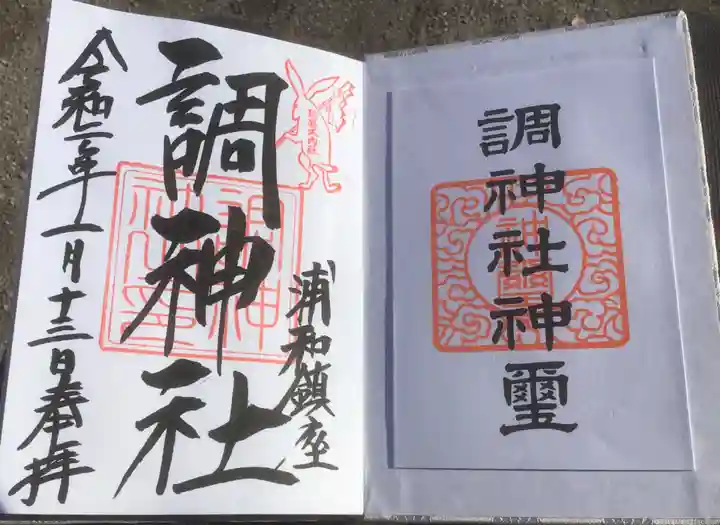 浦和鎮座
調神社
令和二年一月十三日奉拝
調神社神璽